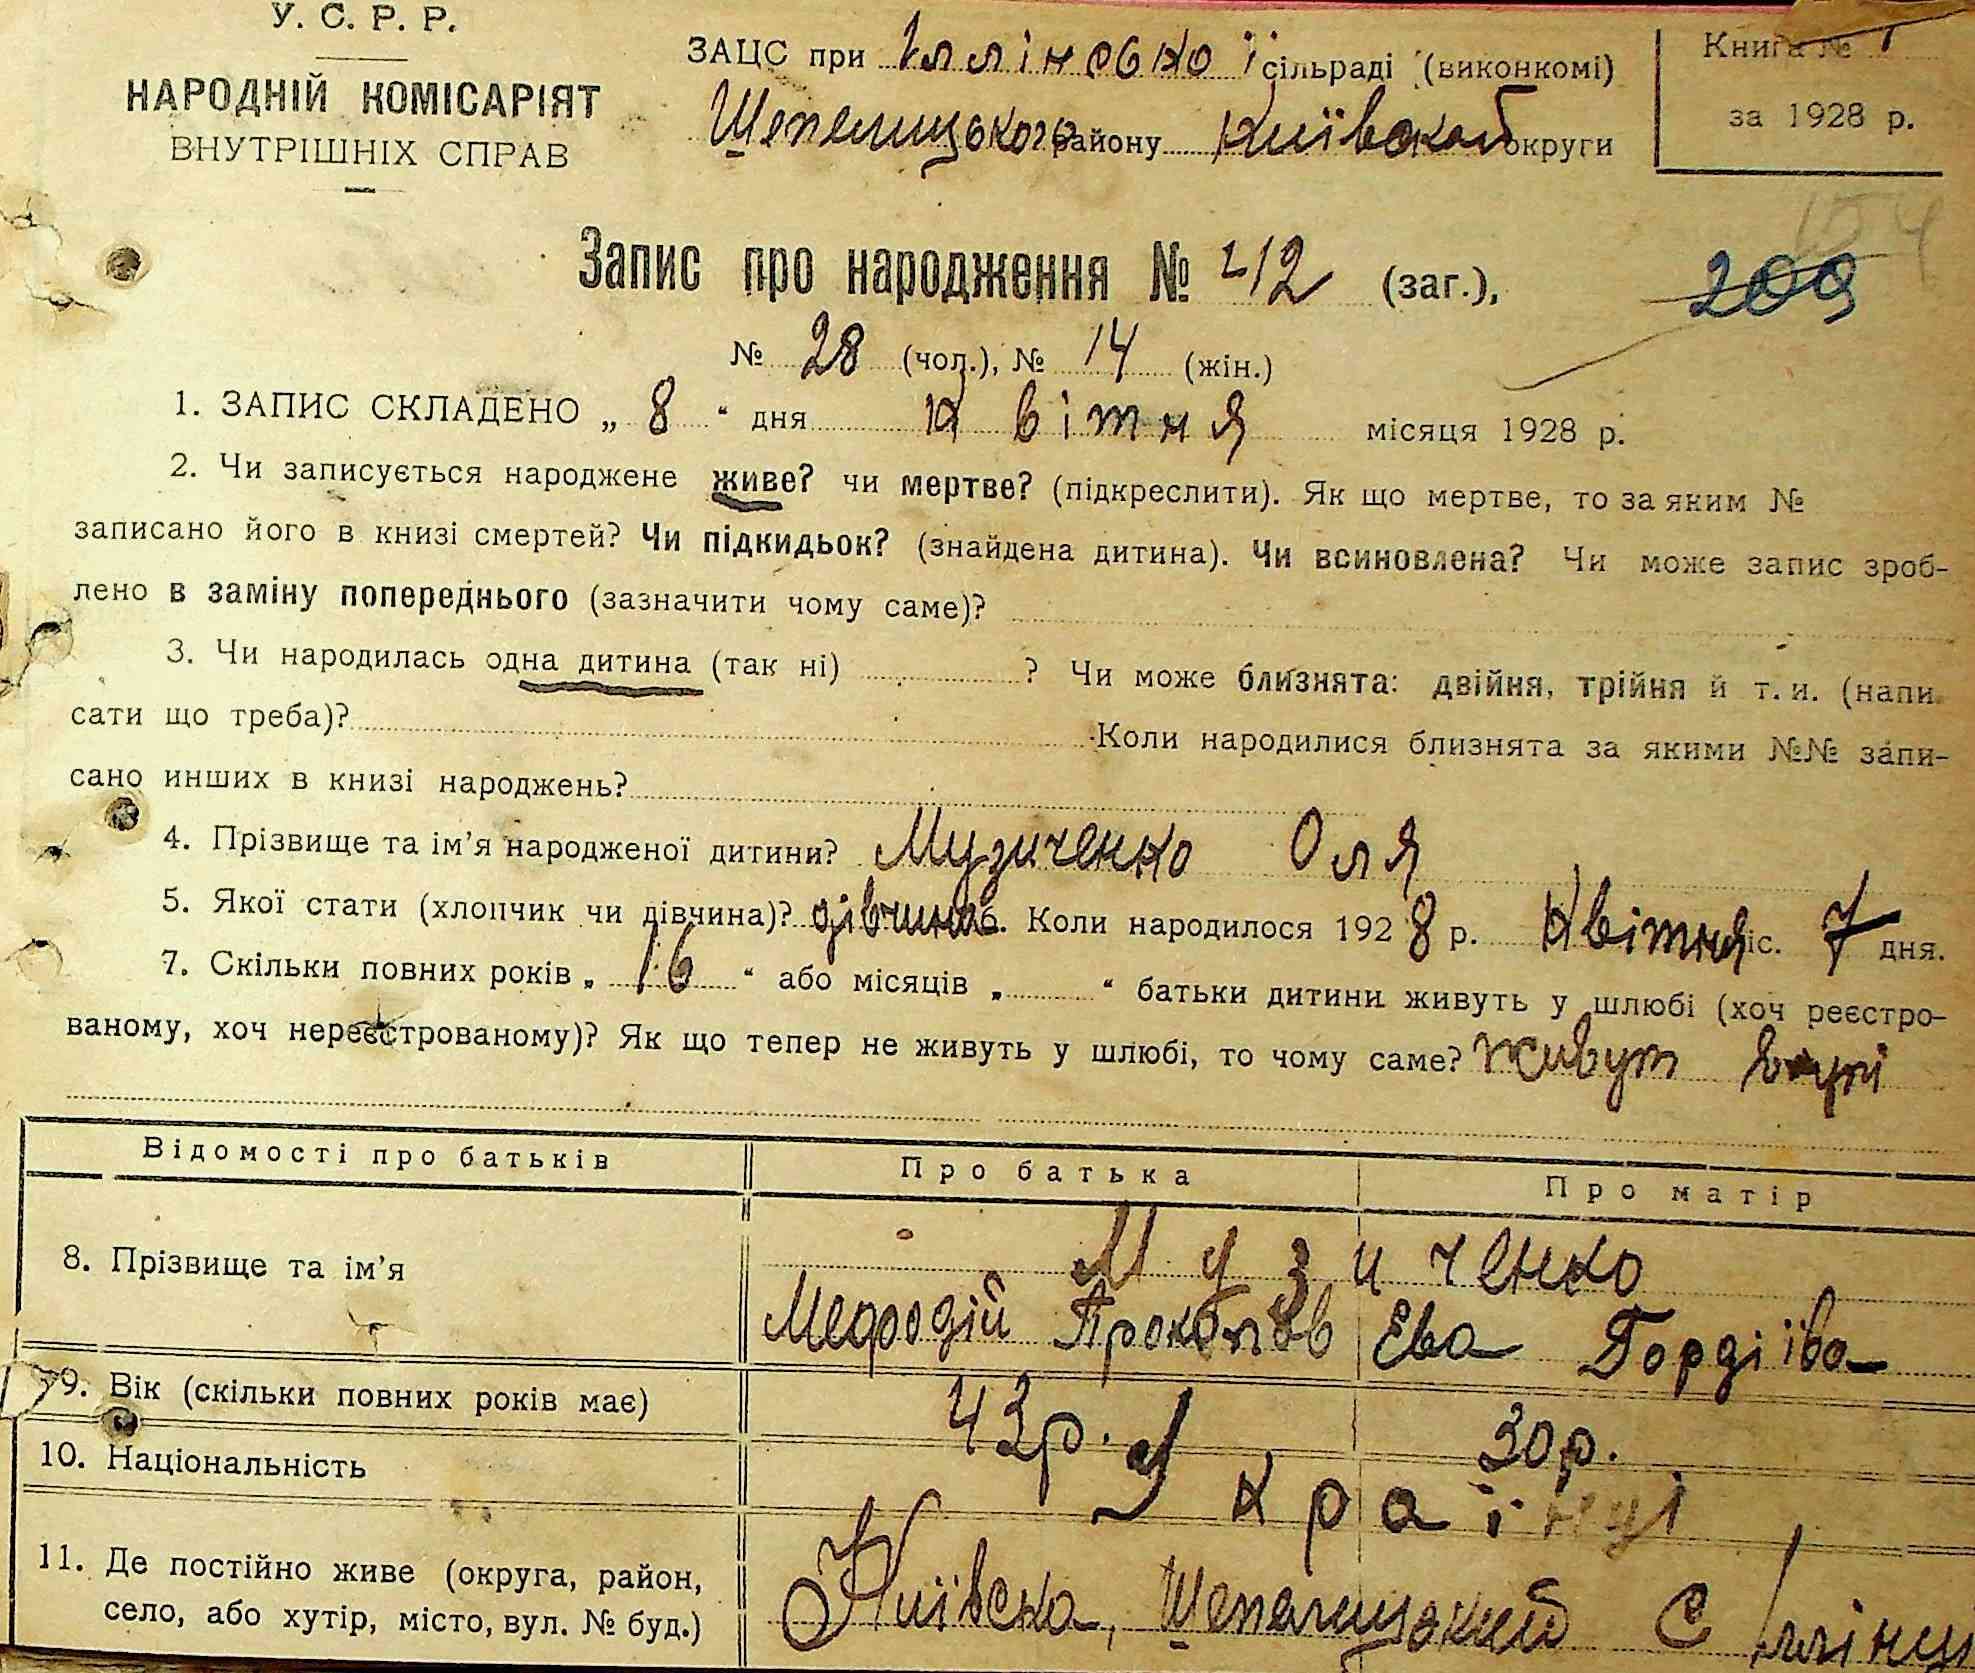 У. С. Р. Р.
НАРОДНІЙ КОМІСАРІЯТ
ВНУТРІШНІХ СПРАВ
ЗАЦС при Іллінсько ї сільраді (виконкомі)
Шепелицького району Київской округи
Книга № 1
за 1928 р.
154
209
Запис про народження № 212 (заг.),
№ 28 (чол.), № 14 (жін.)
1. ЗАПИС СКЛАДЕНО „ 8 “ дня Квітня місяця 1928 р.
2. Чи записується народжене живе? чи мертве? (підкреслити). Як що мертве, то за яким №
записано його в книзі смертей? Чи підкидьок? (знайдена дитина). Чи всиновлена? Чи може запис зроб-
лено в заміну попереднього (зазначити чому саме)?
3. Чи народилась одна дитина (так ні) ? Чи може близнята: двійня, трійня й т. и. (напи
сати що треба)? Коли народилися близнята за якими №№ запи-
сано инших в книзі народжень?
4. Прізвище та ім’я народженої дитини? Музиченко Оля
5. Якої стати (хлопчик чи дівчина)? дівчина 6. Коли народилося 1928 р. Квітня міс. 7 дня.
7. Скільки повних років „ 16 “ або місяців „ “ батьки дитини живуть у шлюбі (хоч реєстро-
ваному, хоч нереєстрованому)? Як що тепер не живуть у шлюбі, то чому саме? живут
Відомості про батьків Про батька Про матір
8. Прізвище та ім’я Музиченко
Мефодій Прокопов Ева Гордіїва
9. Вік (скільки повних років має) 43р. 30р.
10. Національність Українці
11. Де постійно живе (округа, район,
село, або хутір, місто, вул. № буд.) Київска, Шепелицький С Іллінці